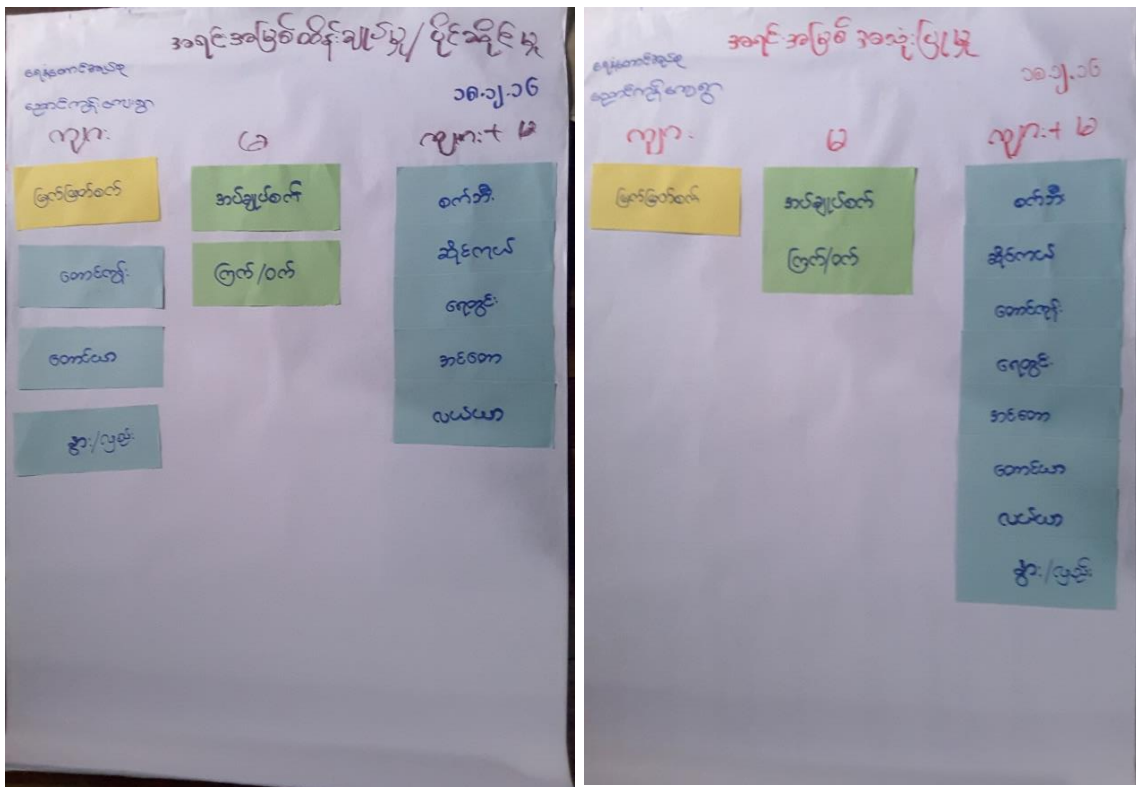 အရင်းအမြစ်ထိန်းချုပ်မှု/ပိုင်ဆိုင်မှု
ညောင်ကုန်းကျေးရွာ
၁၈.၁၂.၁၆
ကျား
မ
ကျား+မ
မြက်ဖြတ်စက်
တောင်ကုန်း
တောင်ယာ
နွား/လှည်း
အပ်ချုပ်စက်
ကြက်/ဝက်
စက်ဘီး
ဆိုင်ကယ်
ရေတွင်း
အင်တော
လယ်ယာ
အရင်းအမြစ်အသုံးပြုမှု
ညောင်ကုန်းကျေးရွာ
၁၈.၁၂.၁၆
ကျား
မ
ကျား+မ
မြက်ဖြတ်စက်
အပ်ချုပ်စက်
ကြက်/ဝက်
စက်ဘီး
ဆိုင်ကယ်
တောင်ကုန်း
ရေတွင်း
အင်တော
တောင်ယာ
လယ်ယာ
နွား/လှည်း